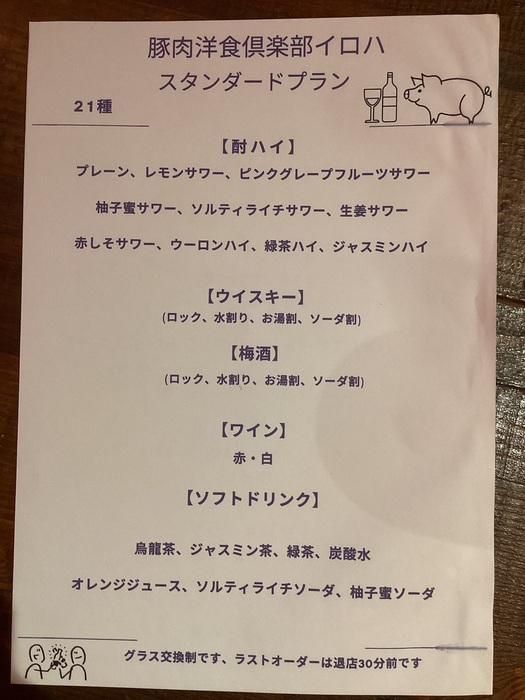 豚肉洋食倶楽部イロハ
スタンダードプラン
21種
【酎ハイ】
プレーン、レモンサワー、ピンクグレープフルーツサワー
柚子蜜サワー、ソルティライチサワー、生姜サワー
赤しそサワー、ウーロンハイ、緑茶ハイ、ジャスミンハイ
【ウイスキー】
(ロック、水割り、お湯割、ソーダ割)
【梅酒】
(ロック、水割り、お湯割、ソーダ割)
【ワイン】
赤・白
【ソフトドリンク】
烏龍茶、ジャスミン茶、緑茶、炭酸水
オレンジジュース、ソルティライチソーダ、柚子蜜ソーダ
グラス交換制です、ラストオーダーは退店30分前です